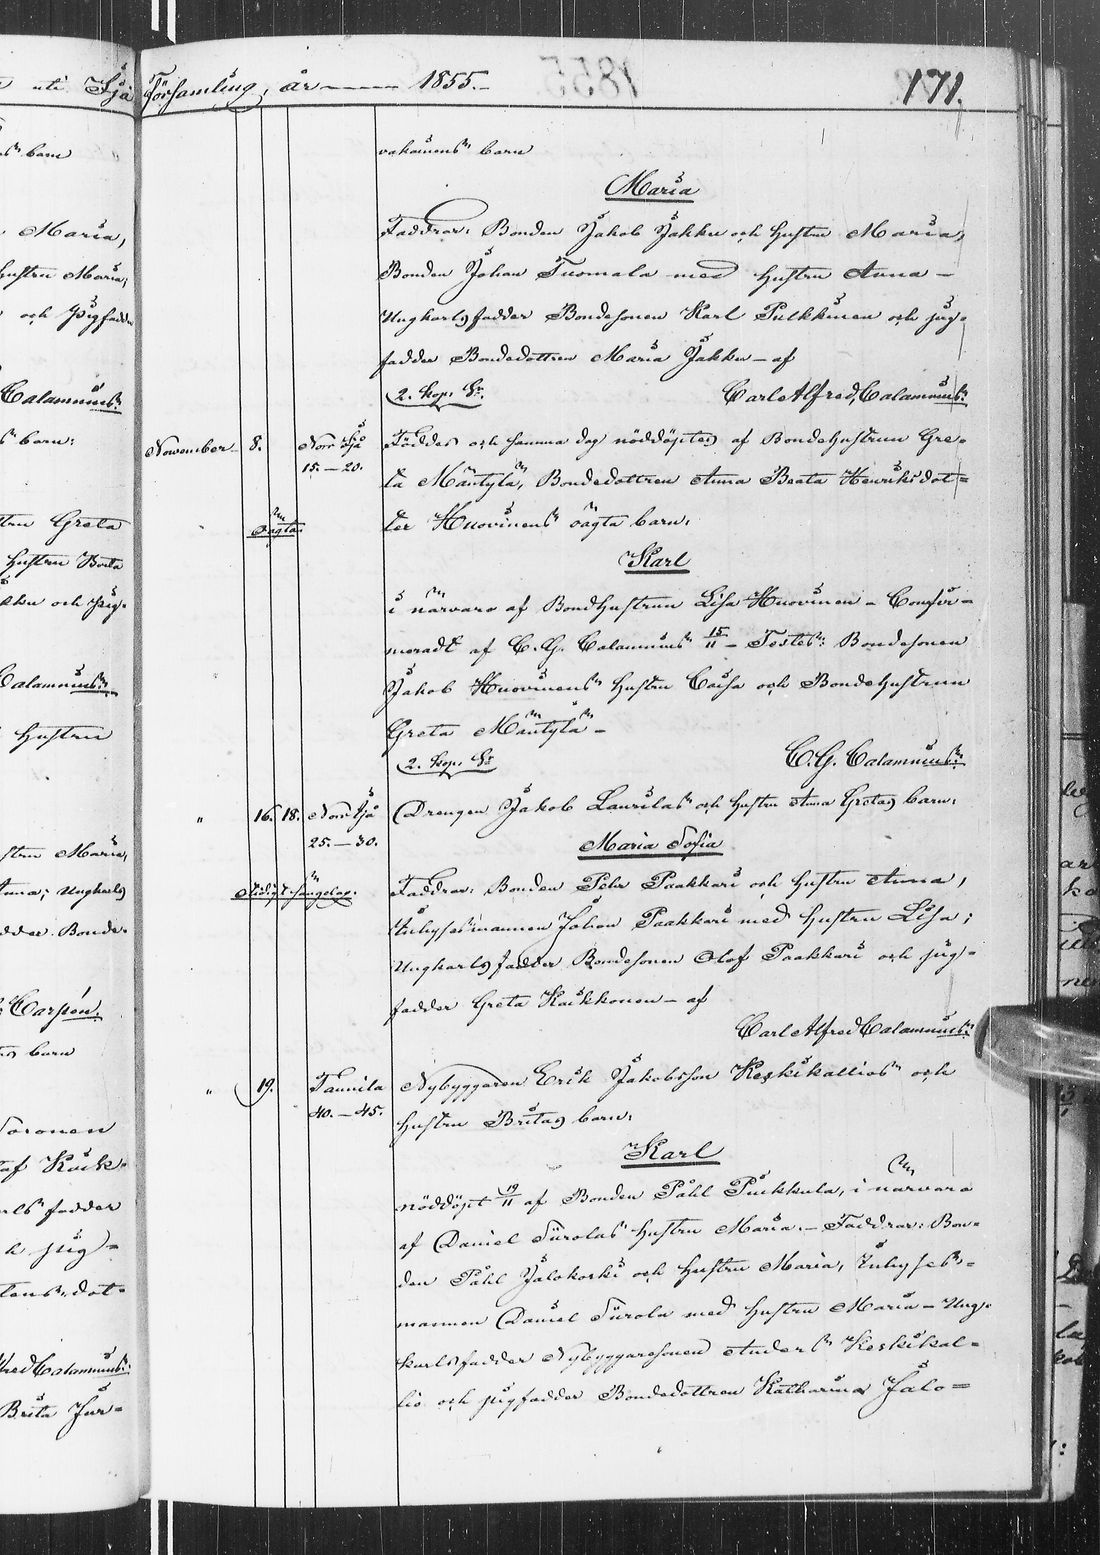 Församling, år 1855.
171.
vakainens barn
Maria
Faddrar: Bonden Jakob Jakku och hustru Maria,
Bonden Johan Tuomala med hustru Anna —
Ungkarlsfadder Bondesonen Karl Pulkkinen och pig-
fadder Bondedottren Maria Jakku — af
2. kop. Sr.
Carl Alfred Calamnius.
November 8.
Norr Sjå
15.—20.
Oägta.
Föddes och samma dag nöddöptes af Bondehustrun Gre-
ta Mäntylä, Bondedottren Anna Beata Henriksdot-
ter Huovinens oägta barn:
Karl
i närvaro af Bondhustrun Lisa Huovinen — Confir-
meradt af C. G. Calamnius 15/11 — Testes: Bondesonen
Jakob Huovinens hustru Caisa och Bondehustrun
Greta Mäntylä —
2. kop. Sr
C. G. Calamnius.
" 16. 18. Norr Sjå
25.—30.
Drengen Jakob Laurilas och hustru Anna Gretas barn:
Maria Sofia
Faddrar: Bonden Pehr Paakkari och hustru Anna,
Inhysesmannen Johan Paakkari med hustru Lisa;
Ungkarlsfadder Bondesonen Olof Paakkari och pig-
fadder Greta Kaikkonen — af
Carl Alfred Calamnius.
" 19. Tannila
40.—45.
Nybyggaren Erik Jakobsson Keskikallios och
hustru Britas barn:
Karl
nöddöpt 19/11 af Bonden Påhl Puikkula, i närvaro
af Daniel Turolas hustru Maria. — Faddrar: Bon-
den Påhl Jalokoski och hustru Maria, Inhyses-
mannen Daniel Turola med hustru Maria — Ung-
karlsfadder Nybyggaresonen Anders Keskikal-
lio och pigfadder Bondedottren Katharina Jalo-